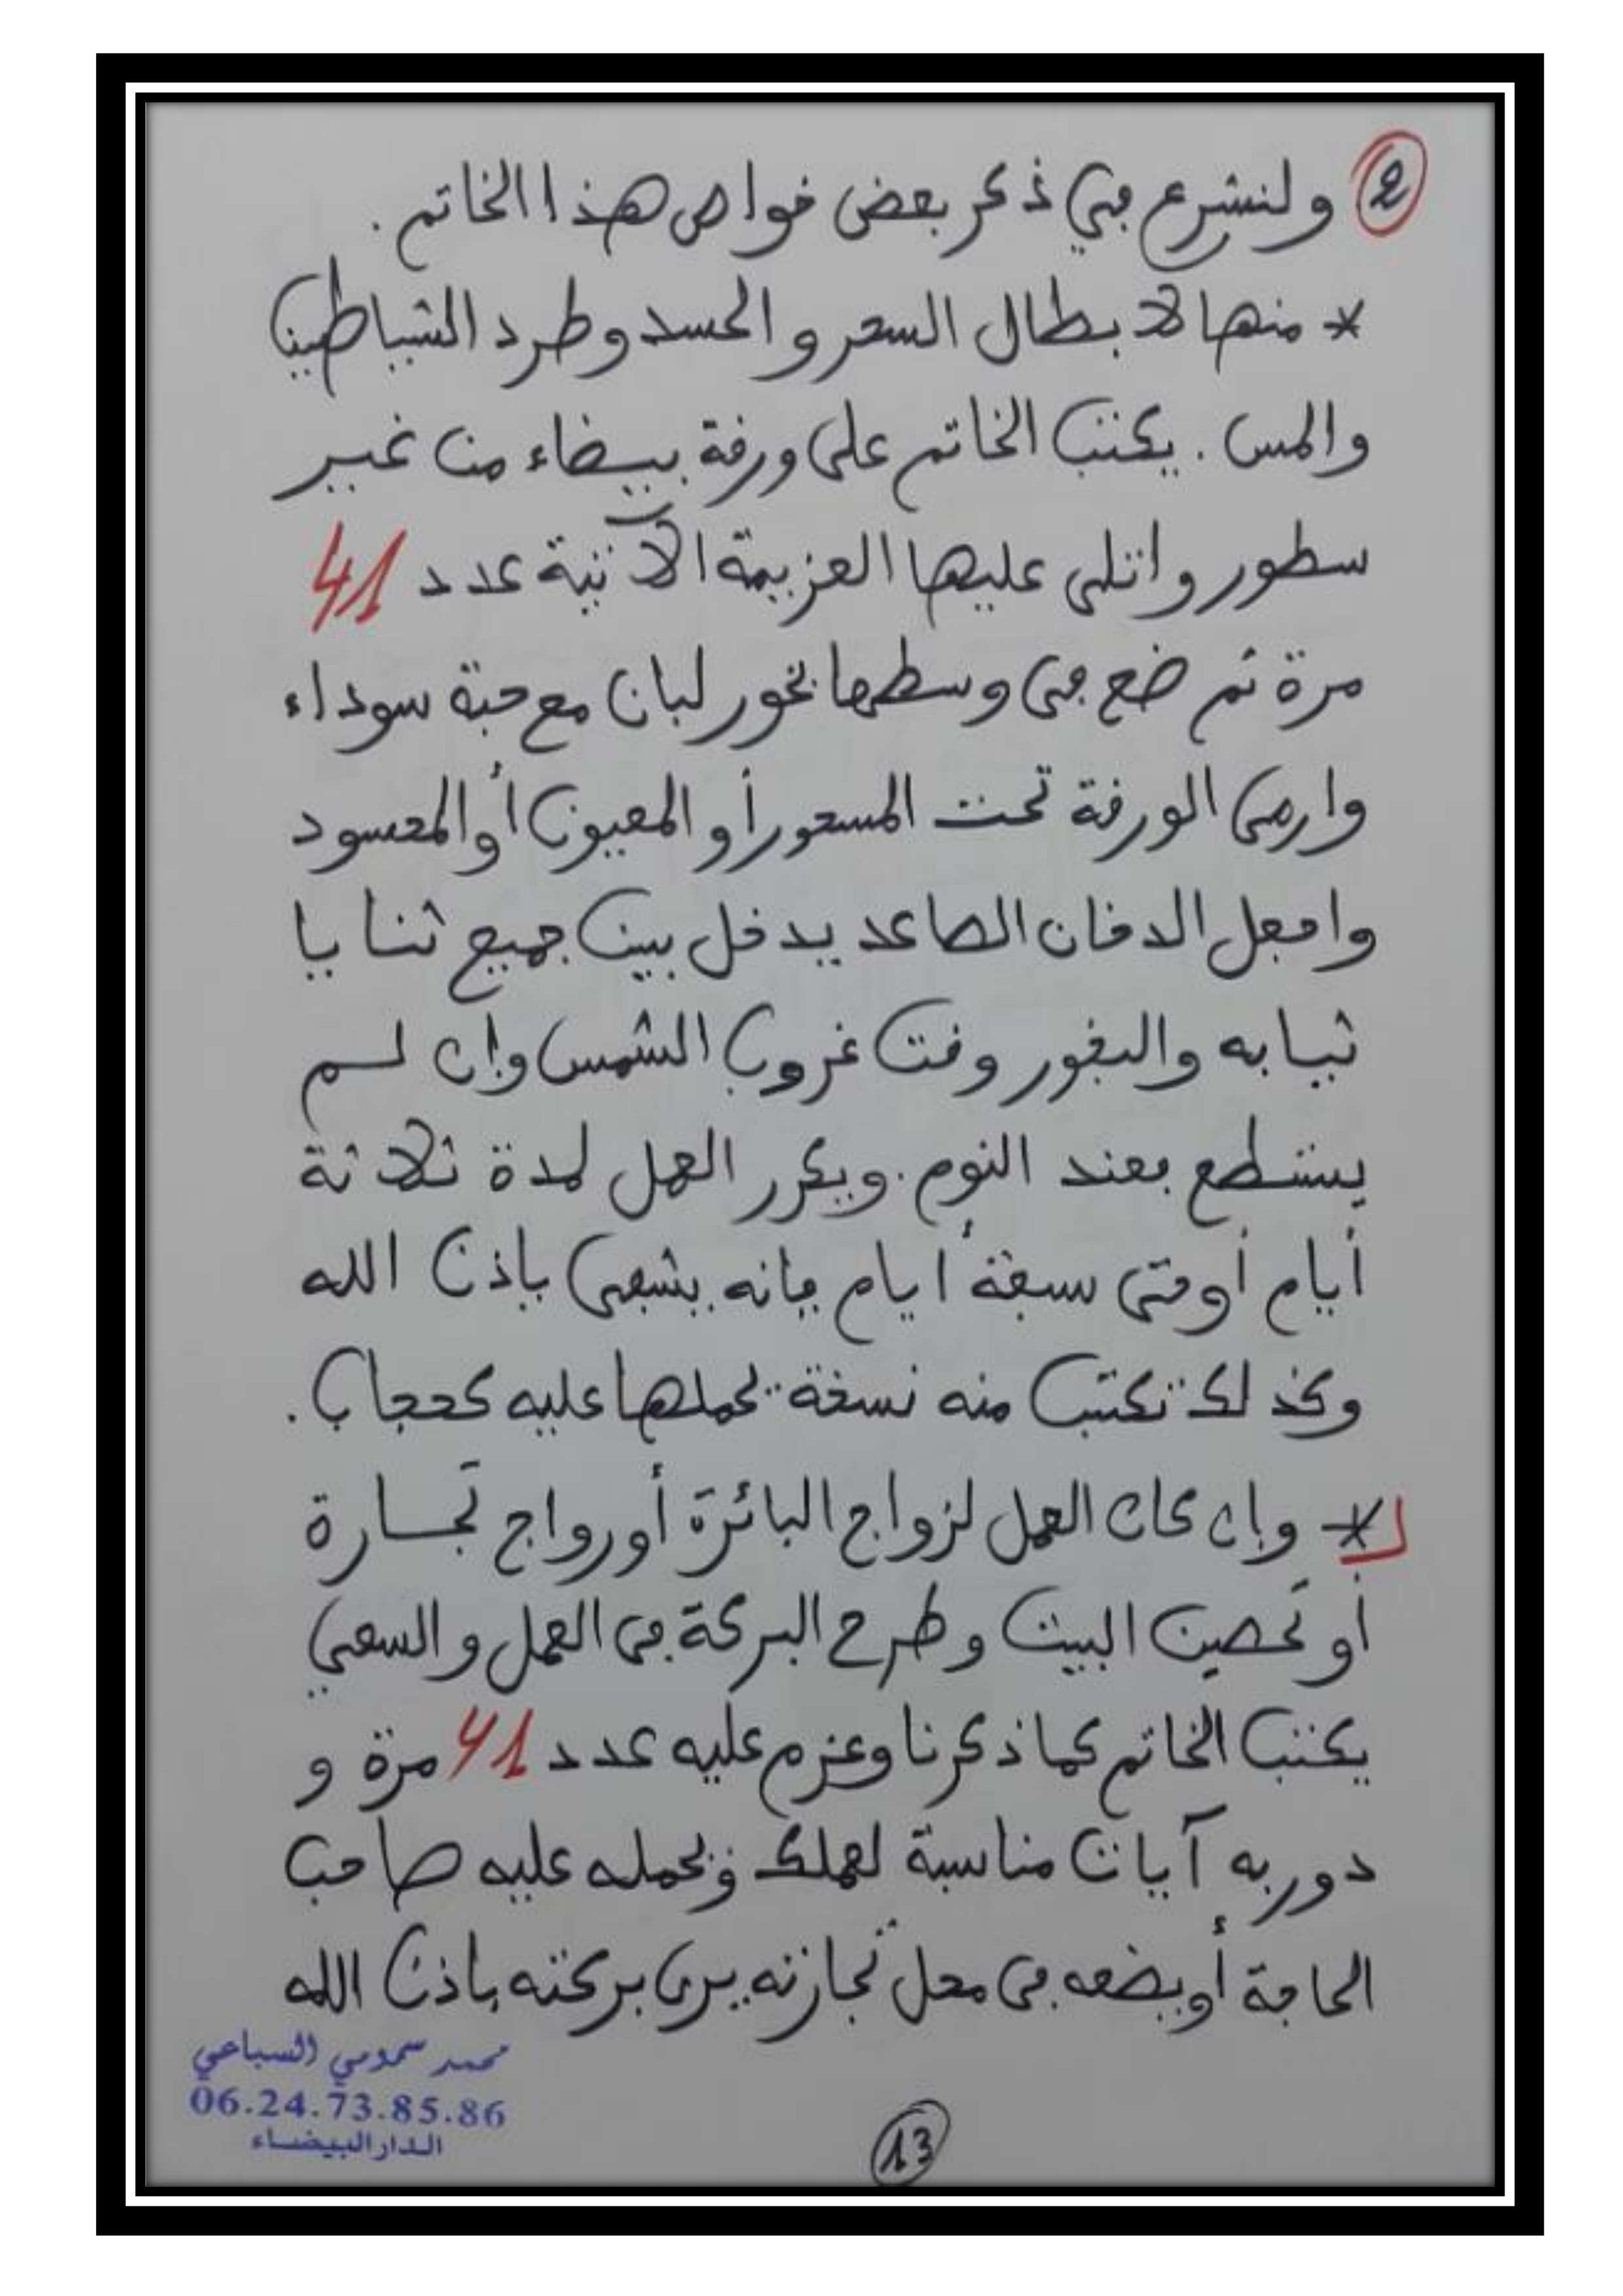 ② ولنشرع في ذكر بعض خواص هذا الخاتم .
* منها لابطال السحر و الحسد وطرد الشياطين
والمس . يكتب الخاتم على ورقة بيضاء من غير
سطور واتلى عليها العزيمة الآتية عدد 41
مرة ثم ضع في وسطها بخور لبان مع حبة سوداء
وارمي الورقة تحت المسحور أو المعيون أو المحسود
واجعل الدخان الصاعد يدخل بين جميع ثنايا
ثيابه والبخور وقت غروب الشمس وإن لم
يستطع فعند النوم . ويكرر العمل لمدة ثلاثة
أيام أو حتى سبعة أيام فإنه يشفى بإذن الله
وكذلك تكتب منه نسخة يحملها عليه كحجاب .
* وإن كان العمل لزواج البائرة أو رواج تجارة
أو تحصين البيت وطرح البركة في العمل و السعي
يكتب الخاتم كما ذكرنا وعزم عليه عدد 41 مرة و
دور به آيات مناسبة لعملك ويحمله عليه صاحب
الحاجة أو يضعه في محل تجارته يرى بركته بإذن الله
محمد سمومي السباعي
06.24.73.85.86
الدار البيضاء
13